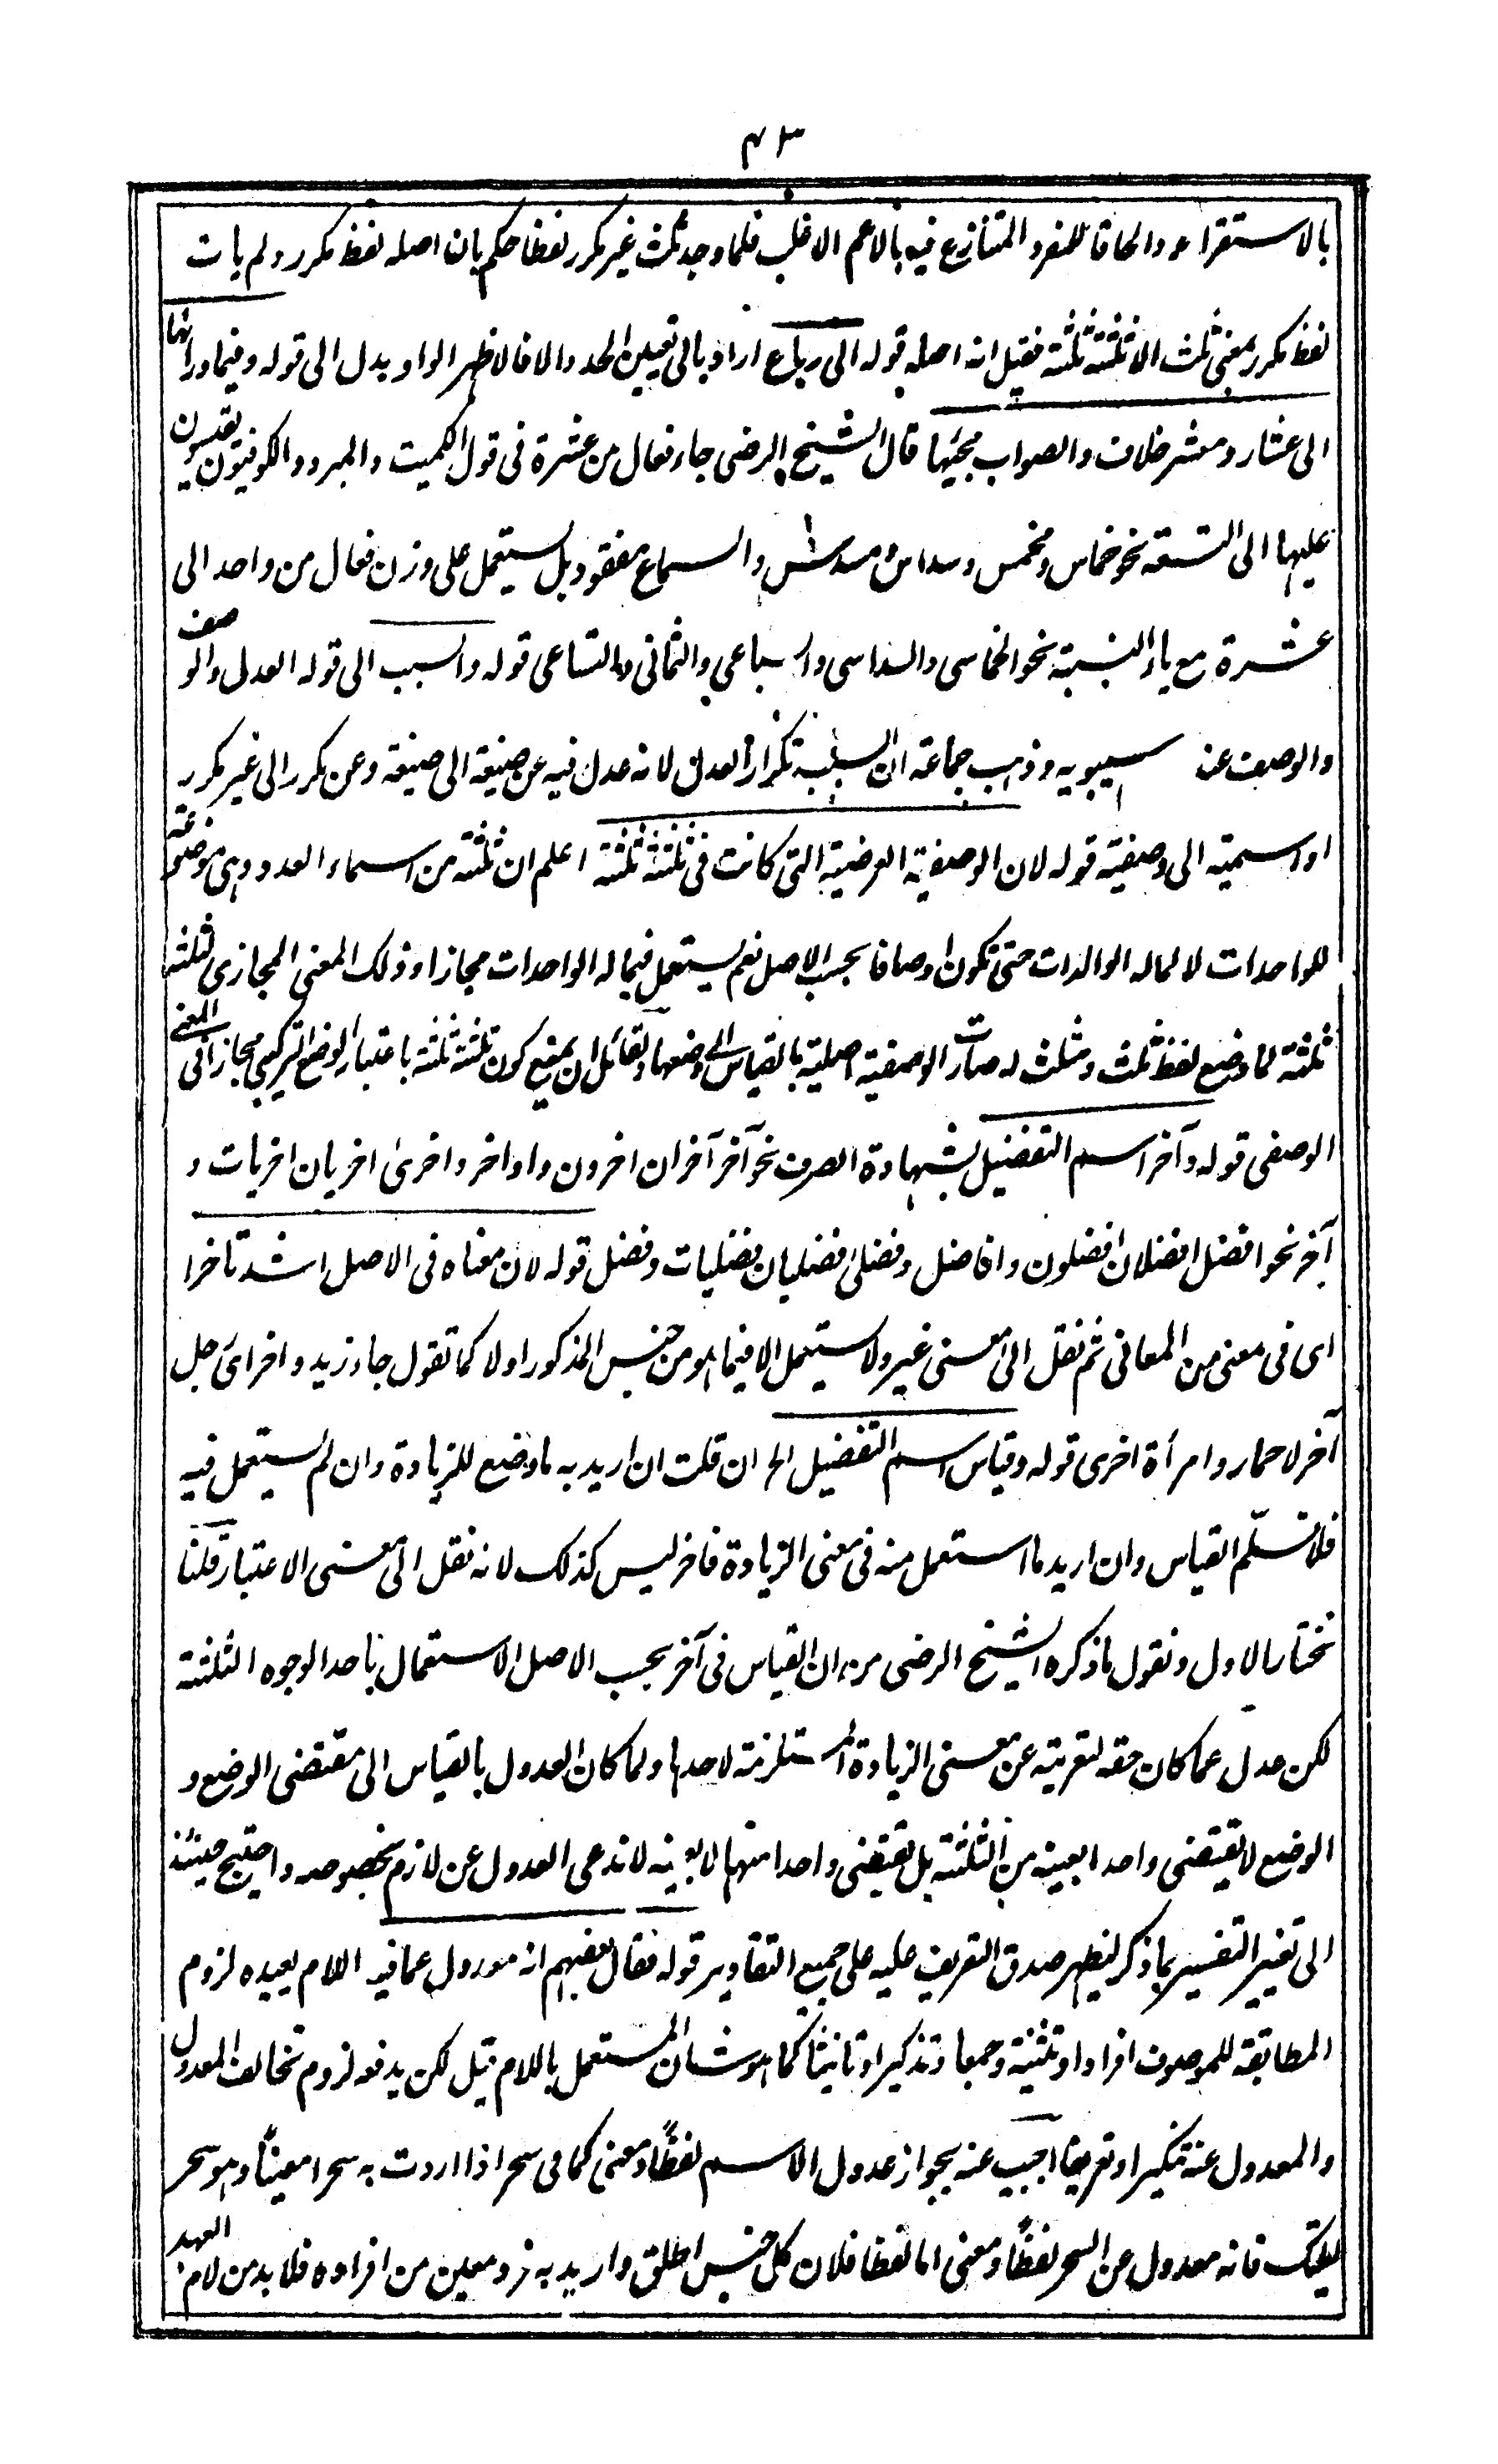 ٤٣
بالاستقراء والحاقا للمفرد المتنازع فيه بالاعم الاغلب فلما وجد ثلث غير مكرر لفظا حكم بان اصله لفظ مكرر ولم يات
لفظ مكرر بمعنى ثلث الا ثلثة ثلثة فقيل انه اصله قوله الى رباع اراد بالى تعيين الحد والا فالاظهر الواو بدل الى قوله وفيما ورائها
الى عشار ومعشر خلاف والصواب مجيئها قال الشيخ الرضى جاء فعال من عشرة فى قول الكميت والمبرد والكوفيون يقيسون
عليها الى التسعة نحو خماس ومخمس وسداس ومسدس والسماع مفقود بل يستعمل على وزن فعال من واحد الى
عشرة مع ياء النسبة نحو الخماسى والسداسى والسباعى والثمانى والتساعى قوله والسبب الى قوله العدل والوصف
والوصف عند سيبويه وذهب جماعة ان السببية تكرار العدل لانه عدل فيه عن صيغة الى صيغة وعن مكرر الى غير مكرر
او اسمية الى وصفية قوله لان الوصفية العرضية التى كانت فى ثلثة ثلثة اعلم ان ثلثة من اسماء العدد وهى موضوعة
للواحدات لا لماله الوالدات حتى تكون اوصافا بحسب الاصل نعم يستعمل فيما له الواحدات مجازا وذلك المعنى المجازى لثلثة
ثلثة لما وضع لفظ ثلث ومثلث له صارت الوصفية اصلية بالقياس الى وضعها ولقائل ان يمنع كون ثلثة ثلثة باعتبار الوضع التركيبى مجازا فى المعنى
الوصفى قوله وآخر اسم التفضيل بشهادة الصرف نحو آخر آخران اخرون واواخر واخرى اخريان اخريات و
آخر نحو افضل افضلان افضلون وافاضل وفضلى فضليان فضليات وفضل قوله لان معناه فى الاصل اشد تاخرا
اى فى معنى من المعانى ثم نقل الى معنى غير ولا يستعمل الا فيما هو من جنس المذكور اولا كما تقول جاء زيد واخر اى رجل
آخر لا حمار وامرأة اخرى قوله وقياس اسم التفضيل الخ ان قلت ان اريد به ما وضع للزيادة وان لم يستعمل فيه
فلا نسلّم القياس وان اريد ما استعمل منه فى معنى الزيادة فاخر ليس كذلك لانه نقل الى معنى الاعتبار قلنا
نختار الاول ونقول ما ذكره الشيخ الرضى من ان القياس فى آخر بحسب الاصل الاستعمال باحد الوجوه الثلثة
لكن عدل عما كان حقه لتعريته عن معنى الزيادة المستلزمة لاحدها ولما كان العدول بالقياس الى مقتضى الوضع و
الوضع لا يقتضى واحدا بعينه من الثلثة بل يقتضى واحدا منها لا بعينه لا ندعى العدول عن لازم بخصوصه واحتيج حينئذ
الى تغيير التفسير بما ذكر ليظهر صدق التعريف عليه على جميع التقادير قوله فقال بعضهم انه معدول عما فيه اللام يعيده لزوم
المطابقة للموصوف افرادا وتثنية وجمعا وتذكيرا وتانيثا كما هو شان المستعمل باللام قيل لكن يدفعه لزوم تخالف المعدول
والمعدول عنه تنكيرا وتعريفا اجيب عنه بجواز عدول الاسم لفظًا ومعنى كما فى سحر اذا اردت به سحرا معينًا وهو سحر
ليلتك فانه معدول عن السحر لفظًا ومعنى اما لفظا فلان كل جنس اطلق واريد به فرد معين من افراده فلا بد من لام العهد